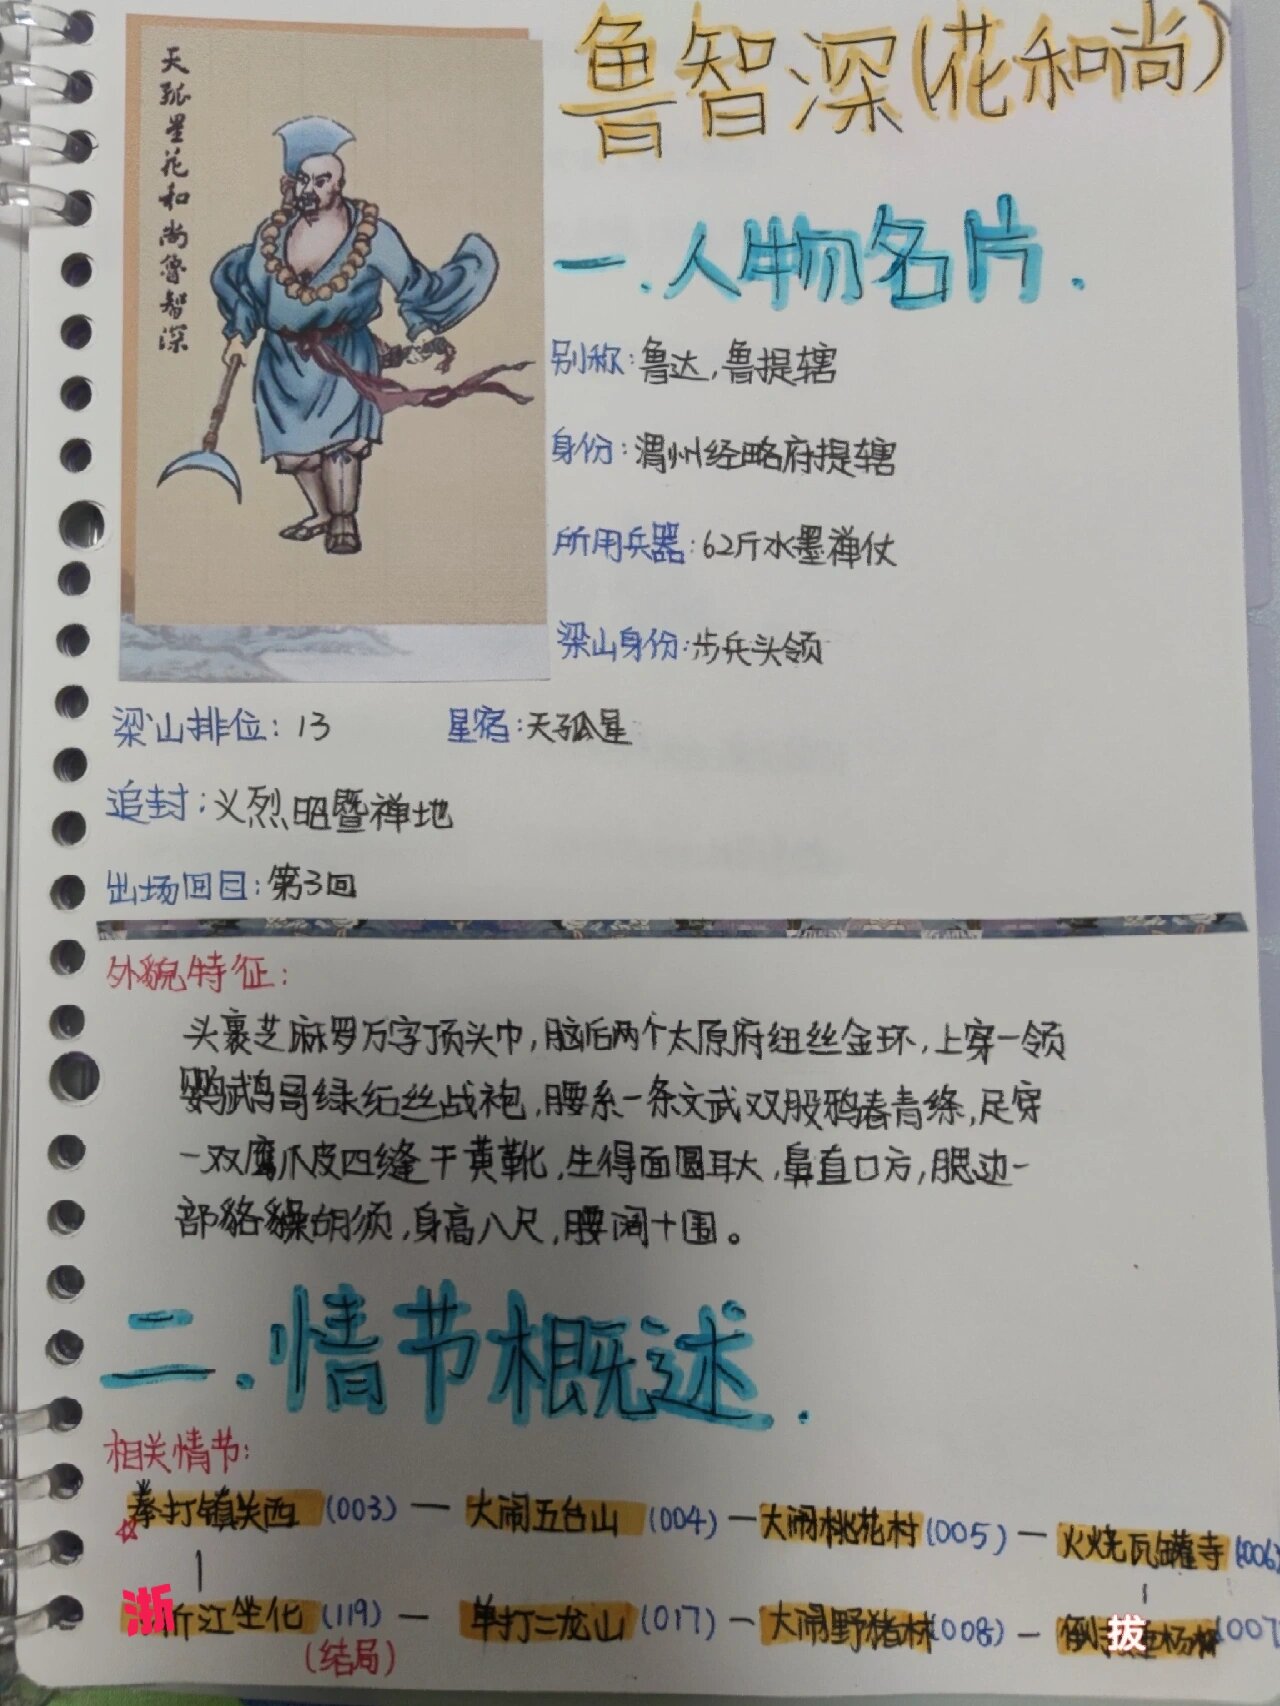 天孤星花和尚鲁智深
鲁智深(花和尚)
一.人物名片.
别称:鲁达,鲁提辖
身份:渭州经略府提辖
所用兵器:62斤水墨禅仗
梁山身份:步兵头领
梁山排位:13 星宿:天孤星
追封:义烈昭暨禅地
出场回目:第3回
外貌特征:
头裹芝麻罗万字顶头巾,脑后两个太原府纽丝金环,上穿一领
鹦鹉哥绿纻丝战袍,腰系一条文武双股鸦春青绦,足穿
一双鹰爪皮四缝干黄靴,生得面圆耳大,鼻直口方,腮边一
部貉𧳅胡须,身高八尺,腰阔十围。
二.情节概述.
相关情节:
拳打镇关西(003)—大闹五台山(004)—大闹桃花村(005)—火烧瓦罐寺(006)
浙江坐化(119)—单打二龙山(017)—大闹野猪林(008)—倒拔垂杨柳(007
(结局)